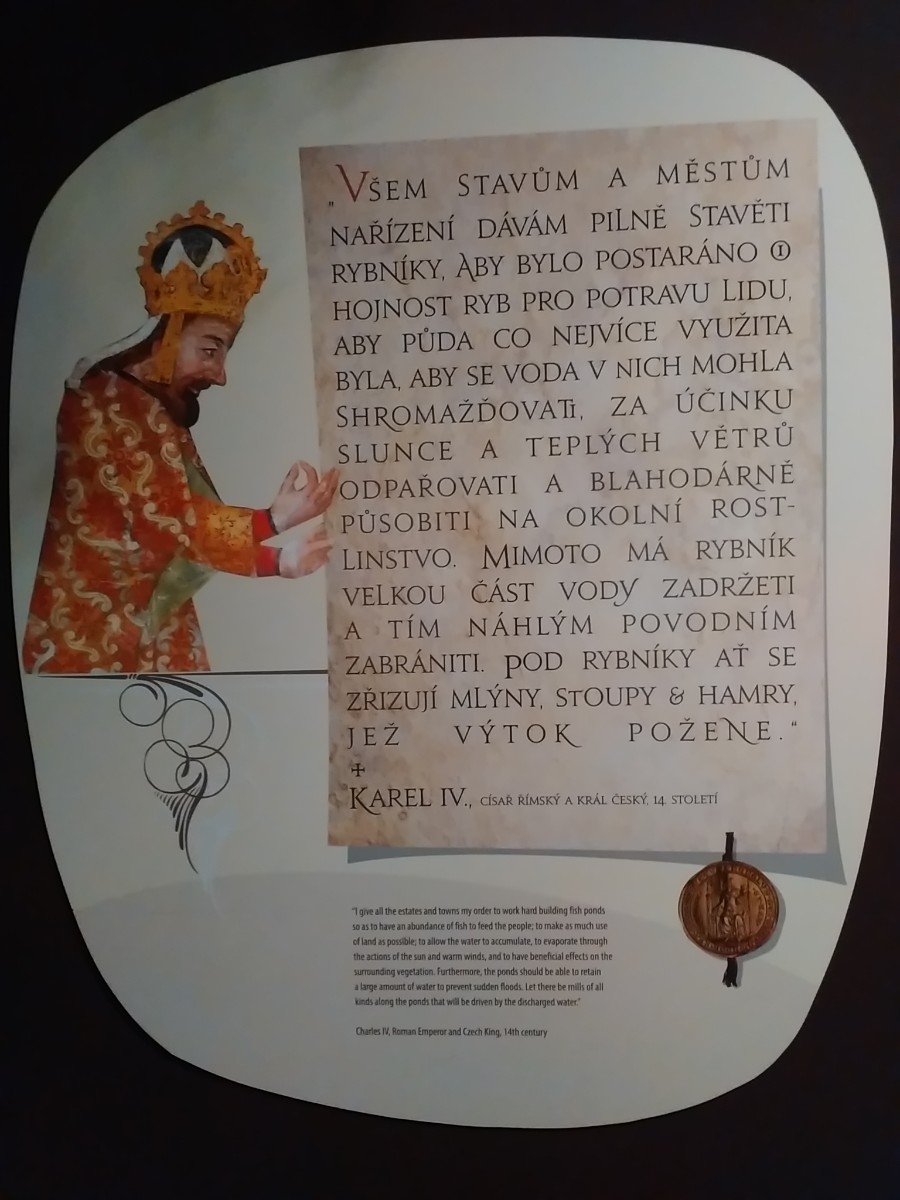 „Všem stavům a městům
nařízení dávám pilně stavěti
rybníky, aby bylo postaráno o
hojnost ryb pro potravu lidu,
aby půda co nejvíce využita
byla, aby se voda v nich mohla
shromažďovati, za účinku
slunce a teplých větrů
odpařovati a blahodárně
působiti na okolní rost-
linstvo. Mimoto má rybník
velkou část vody zadržeti
a tím náhlým povodním
zabrániti. Pod rybníky ať se
zřizují mlýny, stoupy & hamry,
jež výtok požene.“
Karel IV., císař římský a král český, 14. století
"I give all the estates and towns my order to work hard building fish ponds
so as to have an abundance of fish to feed the people; to make as much use
of land as possible; to allow the water to accumulate, to evaporate through
the actions of the sun and warm winds, and to have beneficial effects on the
surrounding vegetation. Furthermore, the ponds should be able to retain
a large amount of water to prevent sudden floods. Let there be mills of all
kinds along the ponds that will be driven by the discharged water."
Charles IV, Roman Emperor and Czech King, 14th century